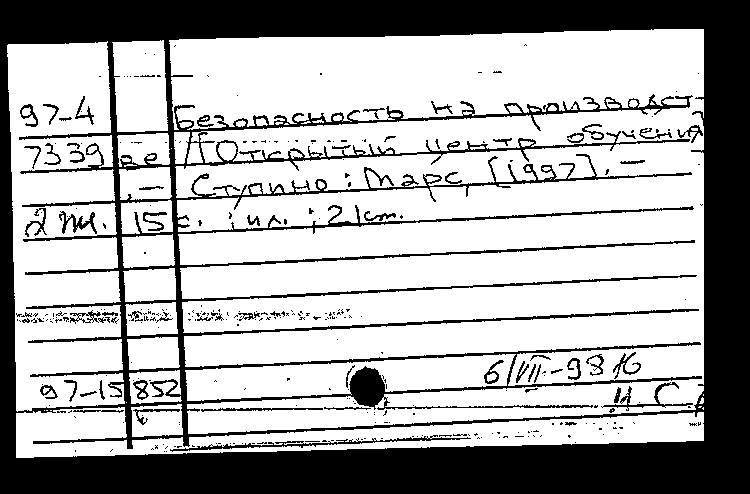 97-4 Безопасность на производст-
7339 ве /[Открытый центр обучения]
. — Ступино : Марс, [1997]. —
2 экз. 15 с. : ил. ; 21 см.
6/VII-98
97-15852